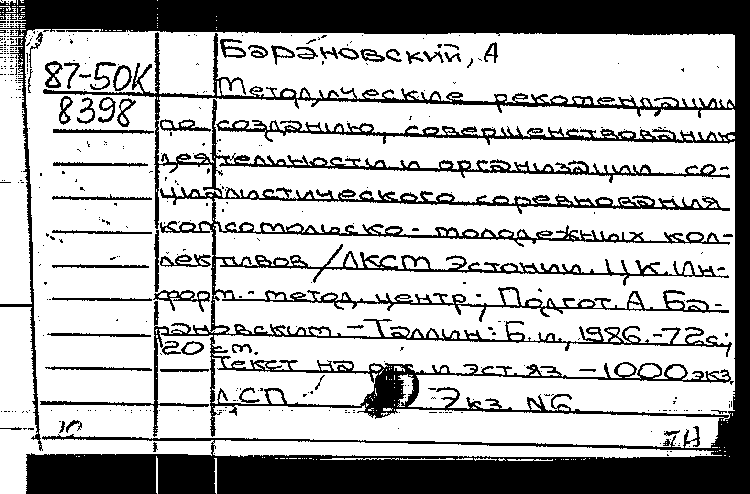 Барановский, А
87-50К
Методические рекомендации
8398
по созданию, совершенствованию
деятельности и организации со-
циалистического соревнования
комсомольско-молодежных кол-
лективов / ЛКСМ Эстонии. ЦК. Ин-
форм.-метод. центр; Подгот. А. Ба-
рановским. - Таллин: Б.и., 1986. - 72 с;
20 см.
Текст на рус. и эст. яз. - 1000 экз
Экз. N6.